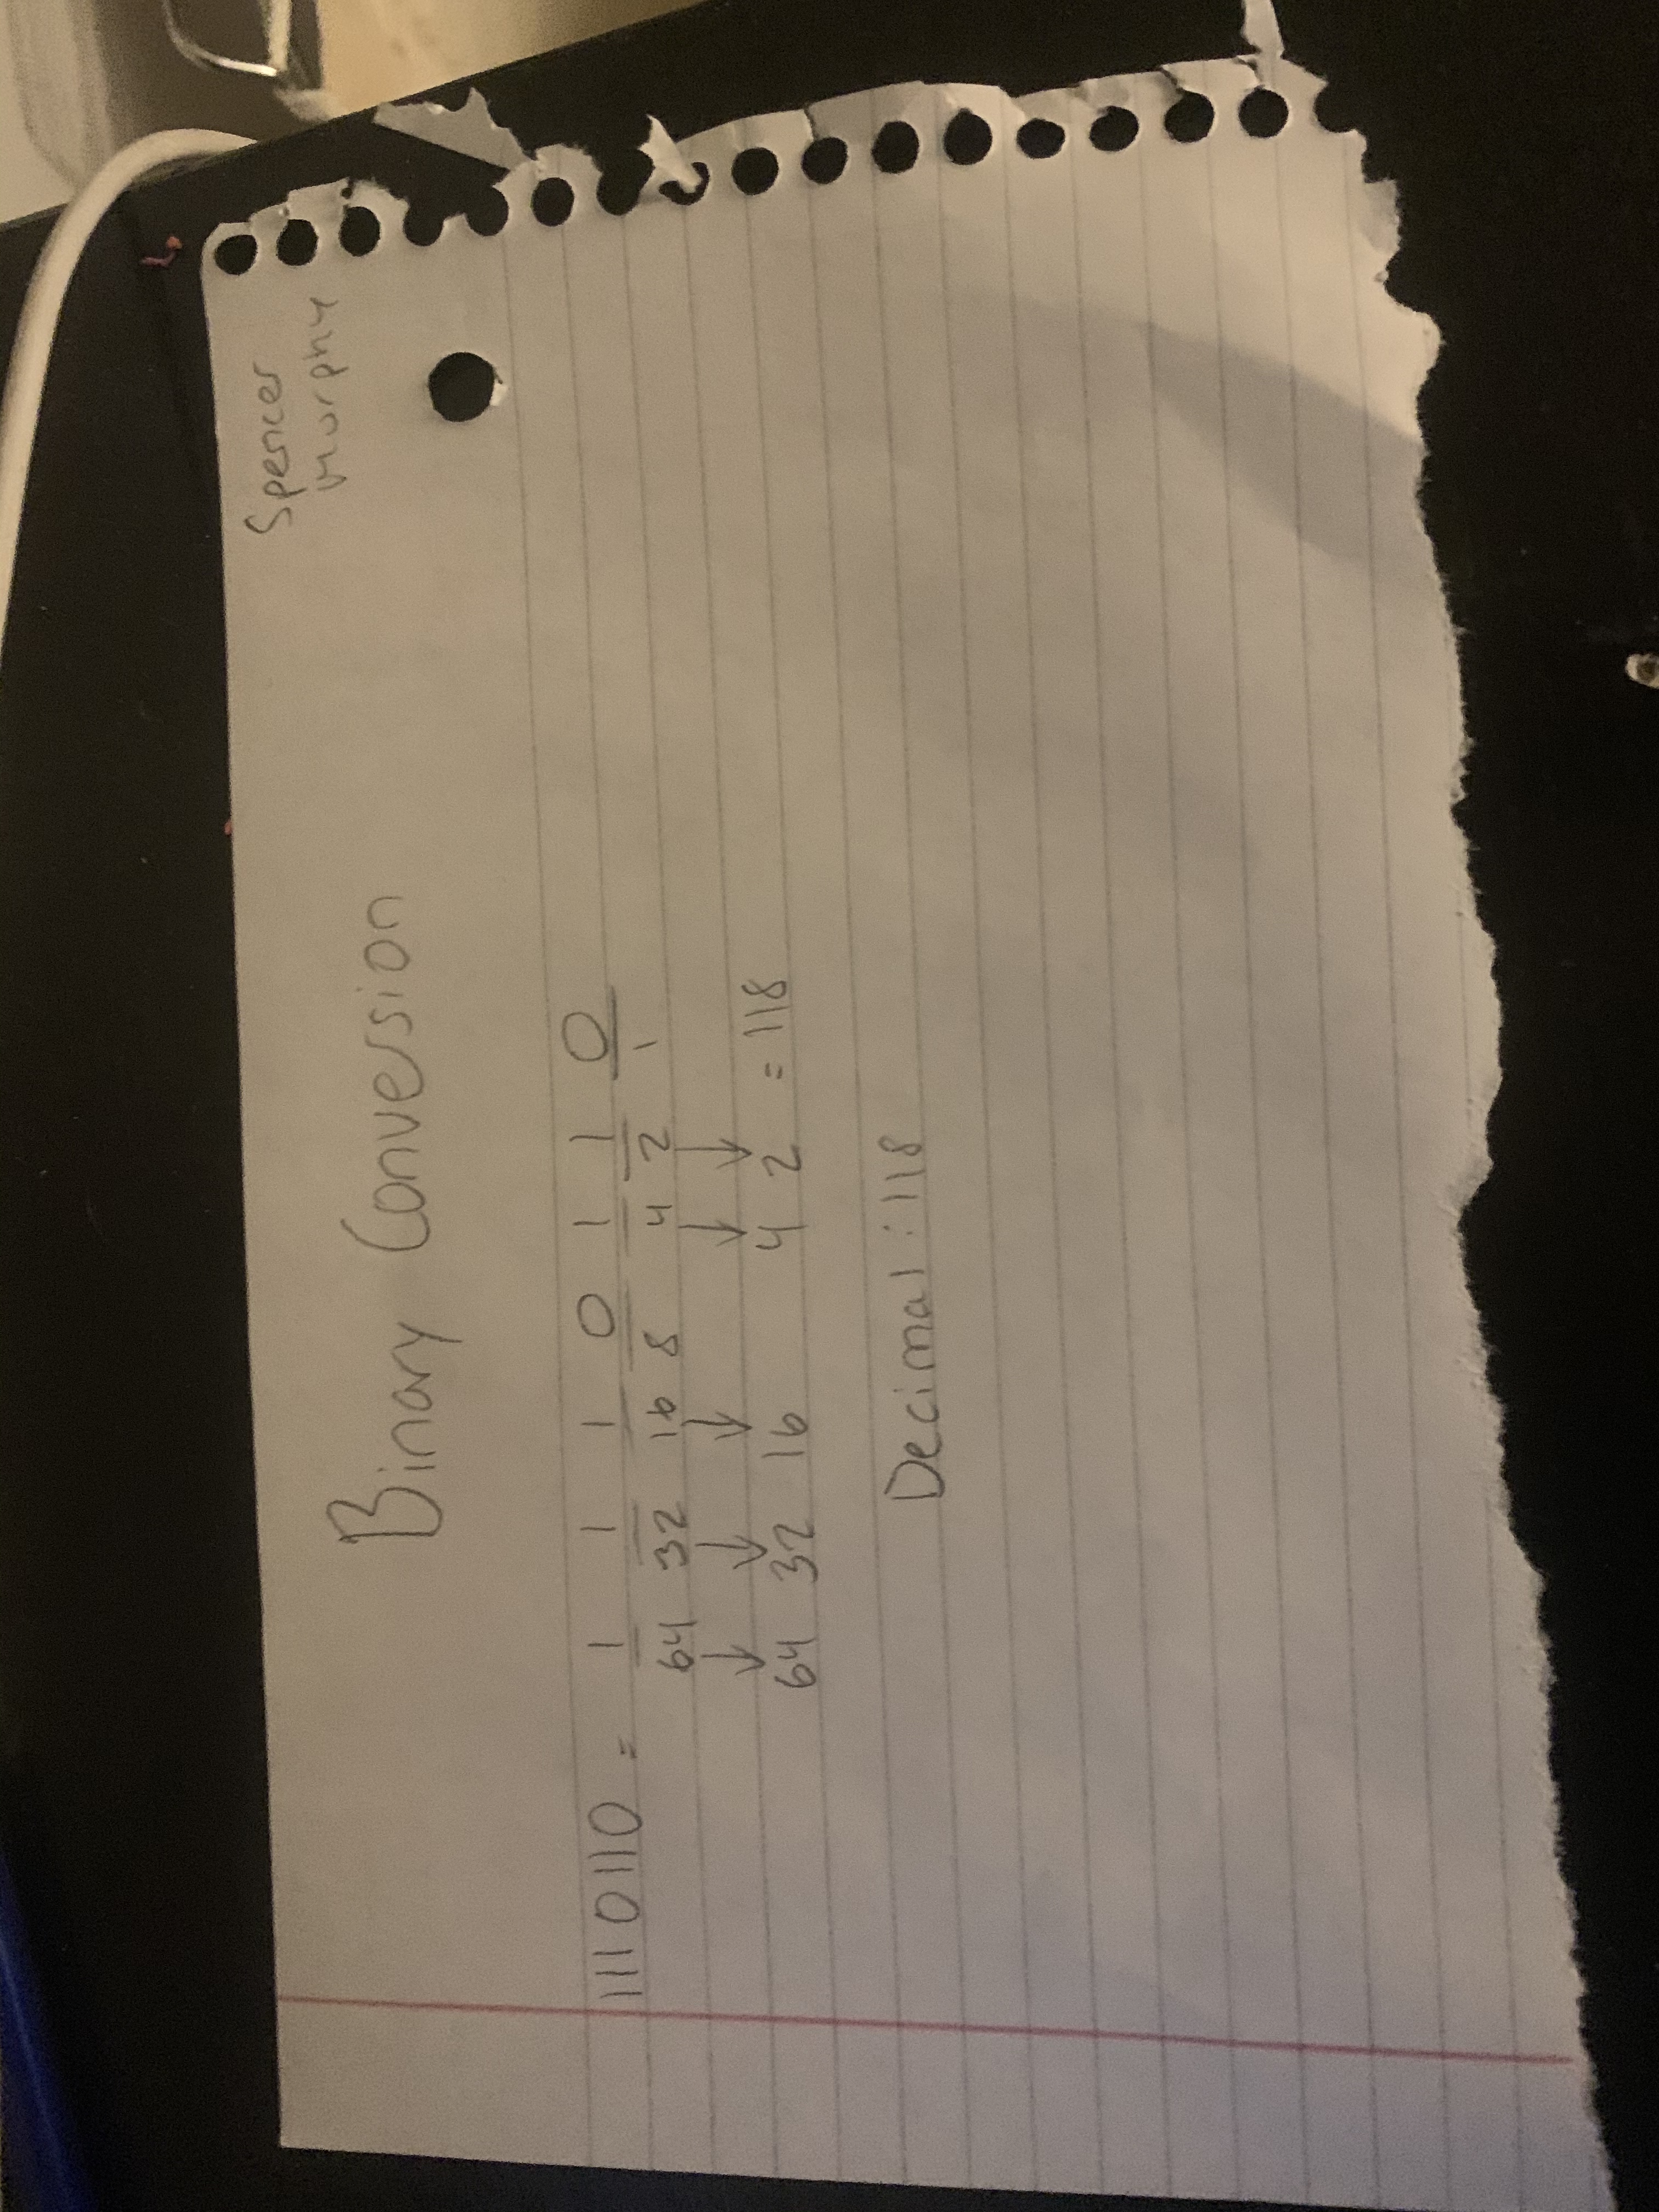 Spencer
Murphy
Binary Conversion
1110110 = 1 1 1 0 1 1 0
64 32 16 8 4 2 1
↓ ↓ ↓ ↓ ↓
64 32 16 4 2 = 118
Decimal: 118